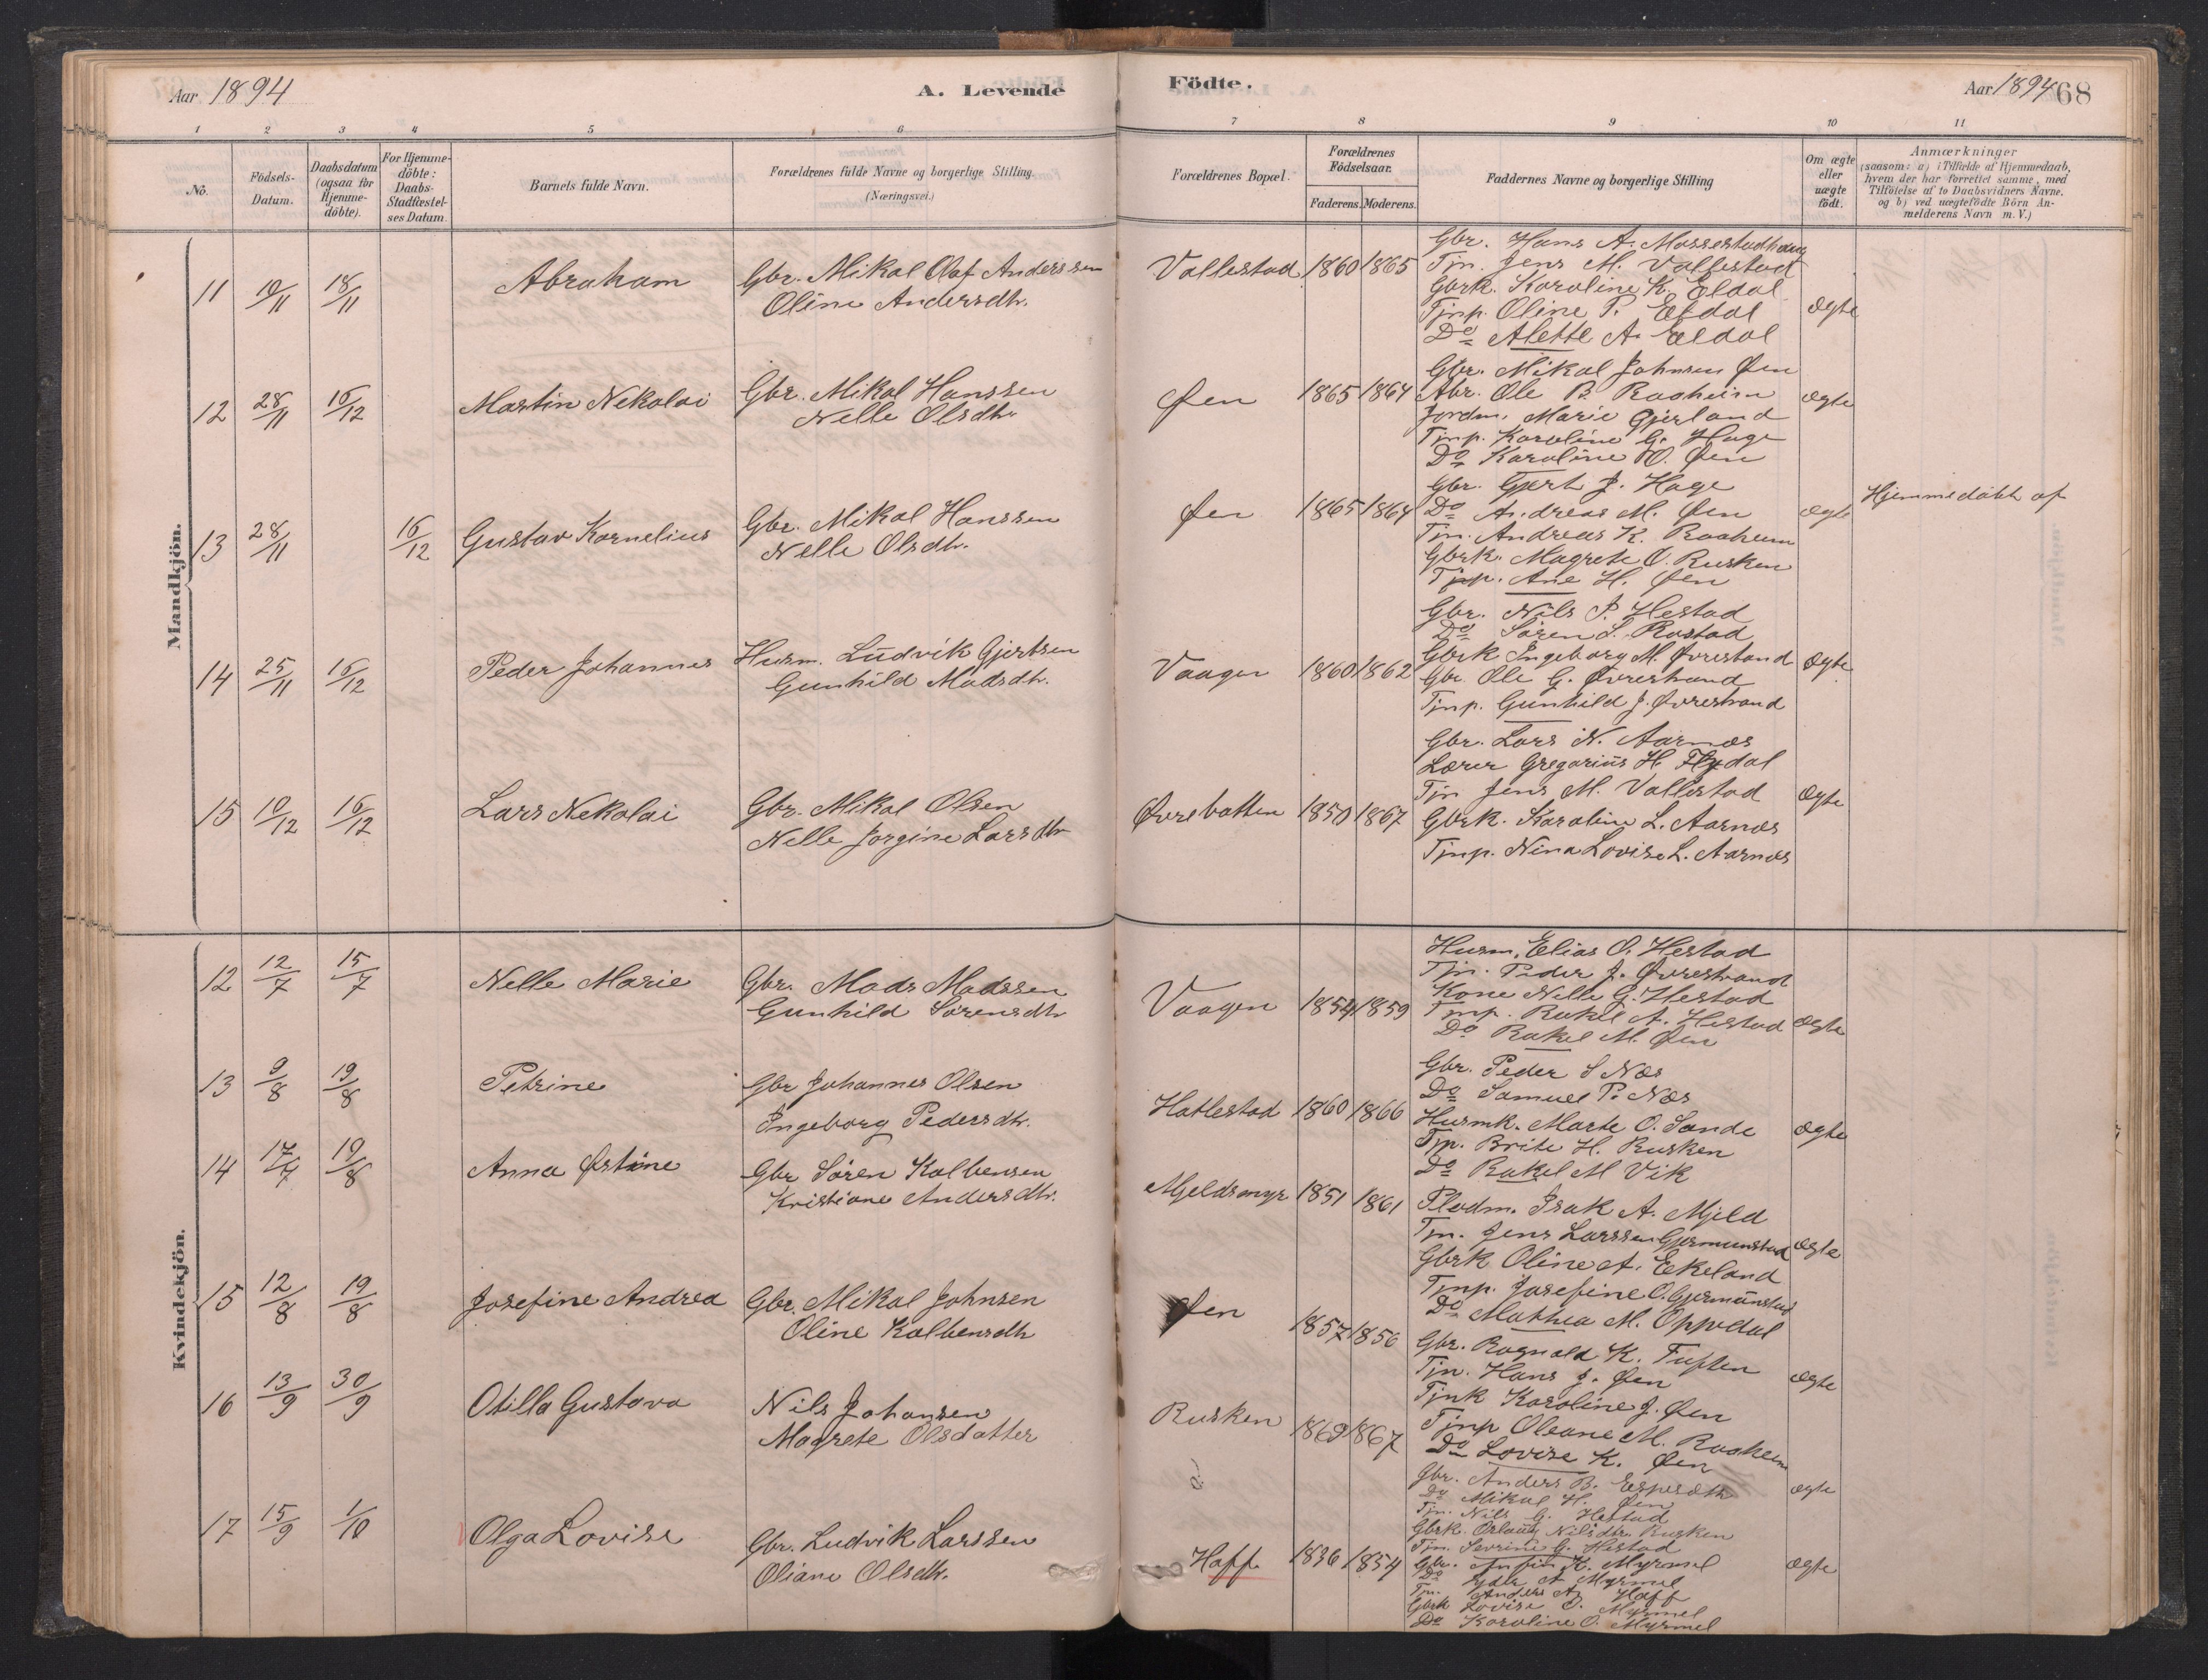 Aar 1894
A. Levende
Födte.
Aar 1894
68
1 2 3 4 5 6 7 8 9 10 11
No.
Födsels-Datum.
Daabsdatum (ogsaa for Hjemme-döbte).
For Hjemme-döbte: Daabs-Stadfæstel-ses Datum.
Barnets fulde Navn.
Forældrenes fulde Navne og borgerlige Stilling (Næringsvei.)
Forældrenes Bopæl.
Forældrenes Födselsaar.
Faderens. Moderens.
Faddernes Navne og borgerlige Stilling
Om ægte eller uægte födt.
Anmærkninger
(saasom: a) i Tilfælde af Hjemmedaab,
hvem der har forrettet samme, med
Tilföielse af to Daabsvidners Navne.
og b) ved uægtefödte Börn An-
melderens Navn m.V.)
Mandkjön.
11 10/11 18/11 Abraham
Gbr. Mikal Olaf Anderssen
Oline Andersdtr.
Vallestad 1860 1865
Gbr. Hans A. Massestadhaug
Tjn. Jens M. Vallestad
Gbrk. Karoline K. Eldal
Tjnp. Oline P. Eldal
Do Alette A. Eldal
Ægte
12 28/11 16/12 Martin Nekolai
Gbr. Mikal Hanssen
Nelle Olsdtr.
Øen 1865 1864
Gbr. Mikal Johnsen Øen
Abr. Ole B. Raaheim
Jordm. Marie Gjerland
Tjnp. Karoline G. Hage
Do Karoline O. Øen
Ægte
13 28/11 16/12 Gustav Kornelius
Gbr. Mikal Hanssen
Nelle Olsdtr.
Øen 1865 1864
Gbr. Gjert J. Hage
Do Andreas M. Øen
Tjn. Andreas K. Raaheim
Gbrk. Magrete O. Rusken
Tjnp. Ane H. Øen
Ægte
Hjemmedöbt af
14 25/11 16/12 Peder Johannes
Husm. Ludvik Gjertsen
Gunhild Madsdtr.
Vaagen 1860 1862
Gbr. Nils P. Hestad
Do Sören S. Rastad
Gbrk Ingeborg M. Øvrestrand
Gbr. Ole G. Øvrestrand
Tjnp. Gunhild J. Øvrestrand
Ægte
15 10/12 16/12 Lars Nekolai
Gbr. Mikal Olsen
Nelle Jorgine Larsdtr
Øvrebotten 1850 1867
Gbr. Lars N. Aarnæs
Lærer Gregarius H. Flydal
Tjn Jens M. Vallestad
Gbrk. Karoline L. Aarnæs
Tjnp. Nina Lovise L. Aarnæs
Ægte
Kvindekjön.
12 12/7 15/7 Nelle Marie
Gbr. Mads Madssen
Gunhild Sörensdtr
Vaagen 1854 1859
Husm. Elias O. Hestad
Tjn. Peder J. Øvrestrand
Kone Nelle G. Hestad
Tjnp. Rakel A. Hestad
Do Rakel M. Øen
Ægte
13 9/8 19/8 Petrine
Gbr Johannes Olsen
Ingeborg Pedersdtr.
Hatlestad 1860 1866
Gbr. Peder S Næs
Do Samuel P. Næs
Husmk. Marte O. Sande
Tjp. Brite H. Rusken
Do Rakel M Vik
Ægte
14 17/7 19/8 Anna Østine
Gbr Sören Kolbensen
Kristiane Andersdtr.
Mjeldsmyr 1851 1861
Pladm. Isak A. Mjeld
Tjn. Jens Larssen Gjermunstad
Gbrk Oline A. Ekeland
Tjnp. Josefine O. Gjermunstad
Do Mathea M. Oppedal
Ægte
15 12/8 19/8 Josefine Andrea
Gbr. Mikal Johnsen
Oline Kolbensdtr
Øen 1857 1856
Gbr. Ragnald K. Tuften
Tjn. Hans J. Øen
Tjnk Karoline J. Øen
Tjnp Oleane M. Raaheim
Do Lovise K. Øen
Ægte
16 13/9 30/9 Otilla Gustava
Nils Johansen
Magrete Olsdatter
Rusken 1869 1867
Gbr. Anders B. Espesæth
Do Mikal H. Øen
Tjn. Nils G. Hestad
Gbrk. Nilsdtr. Rusken
Tjn. Severine G. Hestad
Ægte
17 15/9 1/10 Olga Lovise
Gbr. Ludvik Larssen
Oliane Olsdtr.
Haff 1836 1854
Gbr. K. Myrmel
Do A Myrmel
Tjn. Anders A. Haff
Gbrk Lovise O. Myrmel
Do Karoline O. Myrmel
Ægte